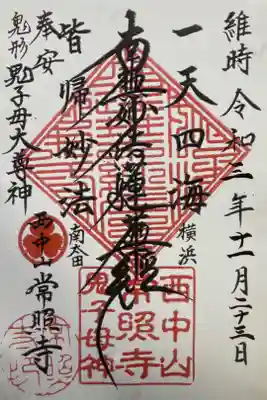 維時令和二年十一月二十三日
一天四海
横浜
南無妙法蓮華經
皆帰妙法
南太田
常照寺
奉安
鬼形鬼子母大尊神
西中山
西中山
常照寺
鬼子母神